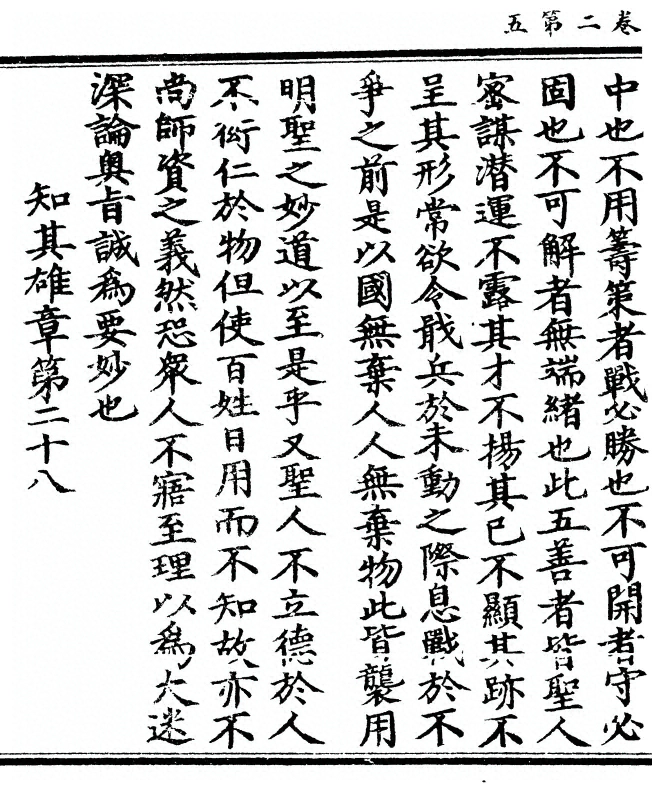 卷二第五
中也不用籌策者戰必勝也不可開者守必
固也不可解者無端緒也此五善者皆聖人
密謀潛運不露其才不揚其已不顯其跡不
呈其形常欲令戢兵於未動之際息戰於不
爭之前是以國無棄人人無棄物此皆襲用
明聖之妙道以至是乎又聖人不立德於人
不衒仁於物但使百姓日用而不知故亦不
尚師資之義然恐衆人不寤至理以爲大迷
深論奧旨誠爲要妙也
知其雄章第二十八